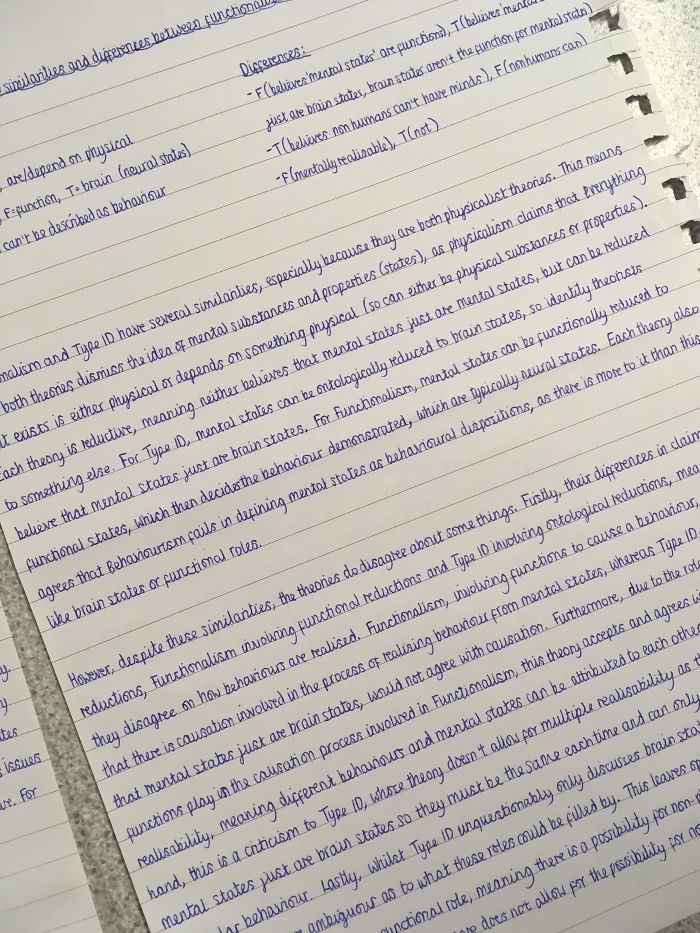 similarities and differences between functionalism
Differences:
-F(believes 'mental states' are functions), T(believes 'mental
just are brain states, brain states aren't the function for mental state)
-T(believes non humans can't have minds), F(nonhumans can)
-F(mentally realisable), T(not)
are/depend on physical
F=function, T=brain (neural states)
can't be described as behaviour
nalism and Type ID have several similarities, especially because they are both physicalist theories. This means
both theories dismiss the idea of mental substances and properties (states), as physicalism claims that everything
exists is either physical or depends on something physical (so can either be physical substances or properties).
Each theory is reductive, meaning neither believes that mental states just are mental states, but can be reduced
to something else. For Type ID, mental states can be ontologically reduced to brain states, so identity theorists
believe that mental states just are brain states. For Functionalism, mental states can be functionally reduced to
functional states, which then decides the behaviour demonstrated, which are typically neural states. Each theory also
agrees that Behaviourism fails in defining mental states as behavioural dispositions, as there is more to it than this
like brain states or functional roles.
However, despite these similarities, the theories do disagree about some things. Firstly, their differences in claim
reductions, Functionalism involving functional reductions and Type ID involving ontological reductions, mea
they disagree on how behaviours are realised. Functionalism, involving functions to cause a behaviour,
that there is causation involved in the process of realising behaviour from mental states, whereas Type ID
that mental states just are brain states, would not agree with causation. Furthermore, due to the role
functions play in the causation process involved in Functionalism, this theory accepts and agrees wi
realisability, meaning different behaviours and mental states can be attributed to each other
hand, this is a criticism to Type ID, whose theory doesn't allow for multiple realisability as th
mental states just are brain states so they must be the same each time and can only
lar behaviour. Lastly, whilst Type ID unquestionably only discusses brain stat
ambiguous as to what these roles could be filled by. This leaves op
unctional role, meaning there is a possibility for non-
does not allow for the possibility for no
issues
ve. For